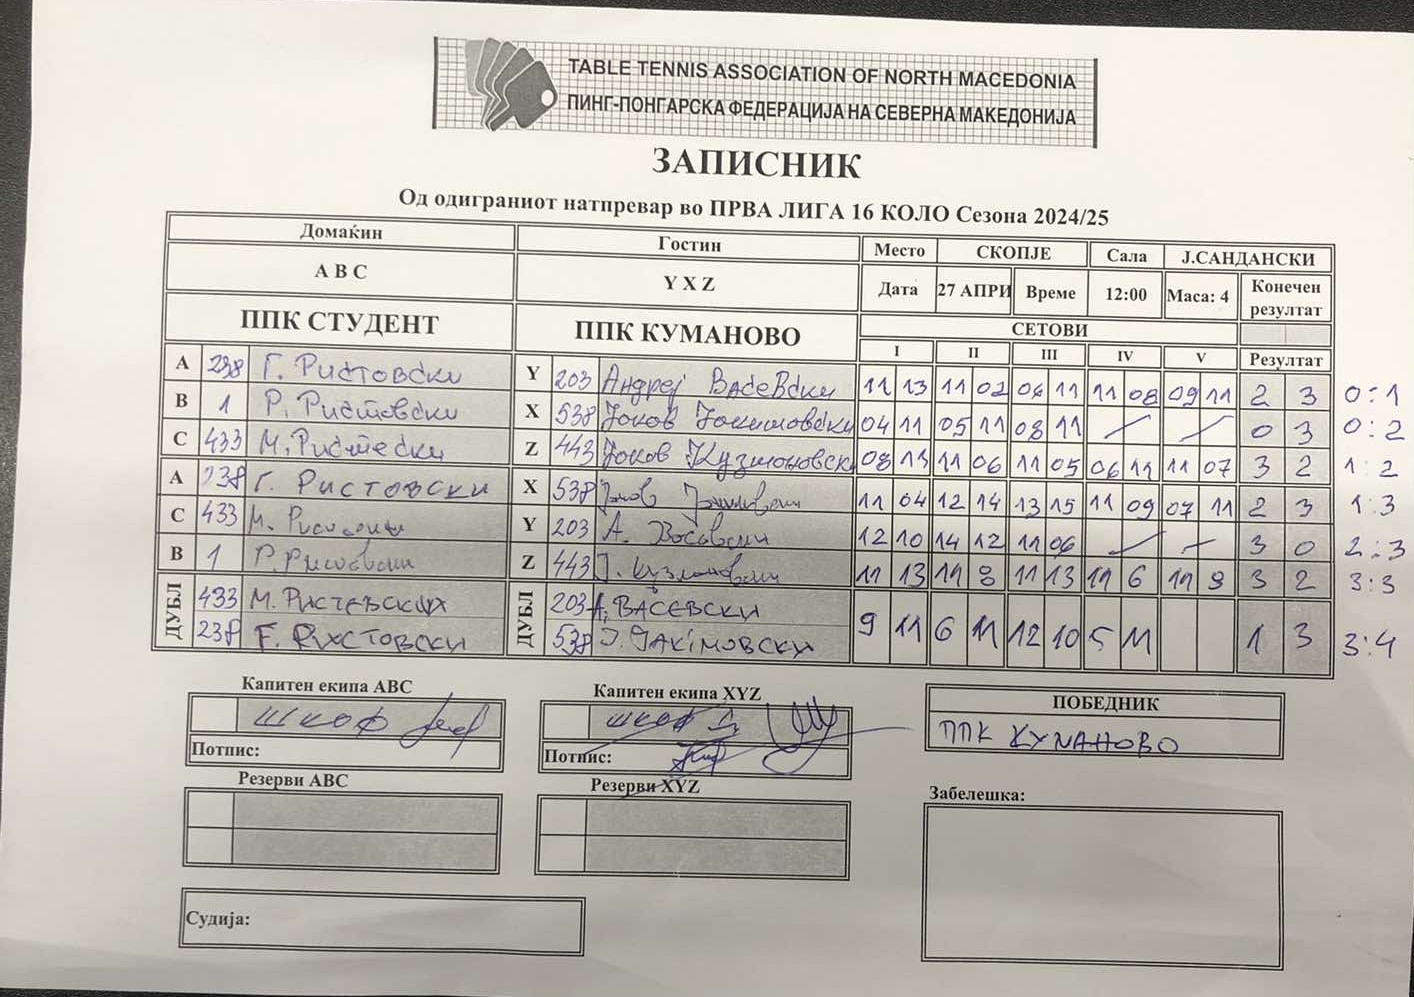 TABLE TENNIS ASSOCIATION OF NORTH MACEDONIA
ПИНГ-ПОНГАРСКА ФЕДЕРАЦИЈА НА СЕВЕРНА МАКЕДОНИЈА
ЗАПИСНИК
Од одиграниот натпревар во ПРВА ЛИГА 16 КОЛО Сезона 2024/25
Домаќин Гостин Место СКОПЈЕ Сала Ј.САНДАНСКИ
A B C Y X Z Дата 27 АПРИ Време 12:00 Маса: 4 Конечен резултат
ППК СТУДЕНТ ППК КУМАНОВО СЕТОВИ
I II III IV V Резултат
A 238 Г. Ристовски Y 203 Андреј Васевски 11 13 11 02 06 11 11 08 09 11 2 3 0:1
B 1 Р. Ристовски X 538 Јаков Јакимовски 04 11 05 11 08 11 0 3 0:2
C 433 М. Ристески Z 443 Јаков Кузмановск 08 11 11 06 11 05 06 11 11 07 3 2 1:2
A 238 Г. Ристовски X 538 11 04 12 14 13 15 11 09 07 11 2 3 1:3
C 433 М. Y 203 А. Васевски 12 10 14 12 11 06 3 0 2:3
B 1 Р. Ристовски Z 443 Ј. Кузмановски 11 13 11 8 11 13 11 6 11 9 3 2 3:3
ДУБЛ 433 М. РИСТЕВСКИ ДУБЛ 203 А. ВАСЕВСКИ 9 11 6 11 12 10 5 11 1 3 3:4
238 Г. РИСТОВСКИ 538 Ј. ЈАКИМОВСКИ
Капитен екипа ABC Капитен екипа XYZ ПОБЕДНИК
ШКОФ ШКОФ ППК КУМАНОВО
Потпис: Потпис:
Резерви ABC Резерви XYZ Забелешка:
Судија: